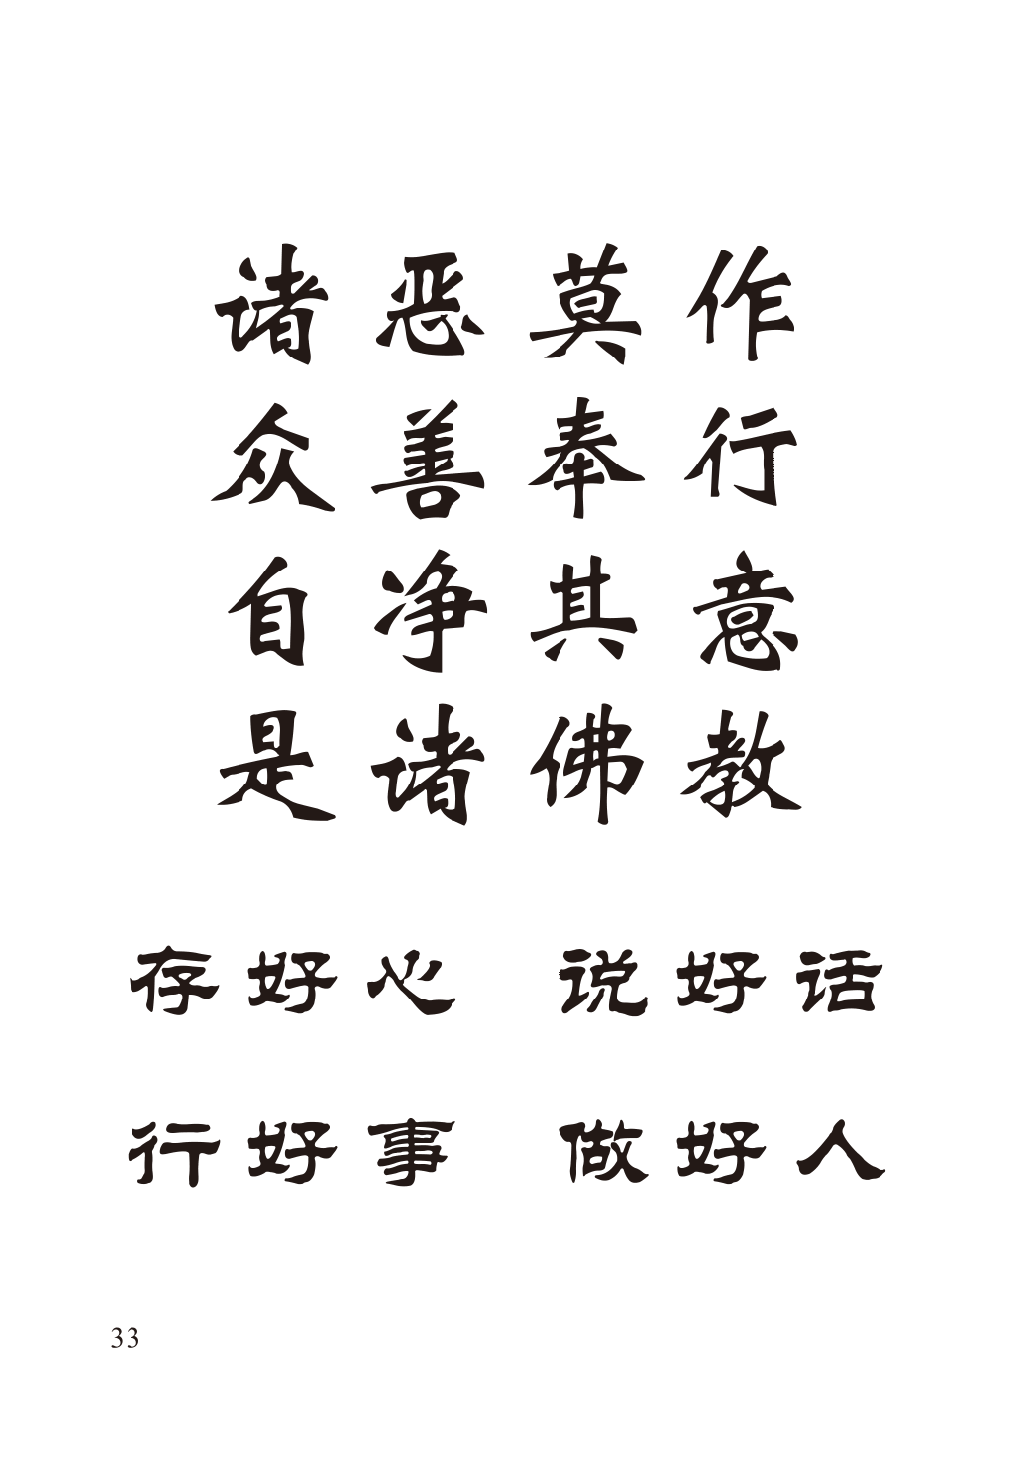 诸恶莫作
众善奉行
自净其意
是诸佛教
存好心 说好话
行好事 做好人
33